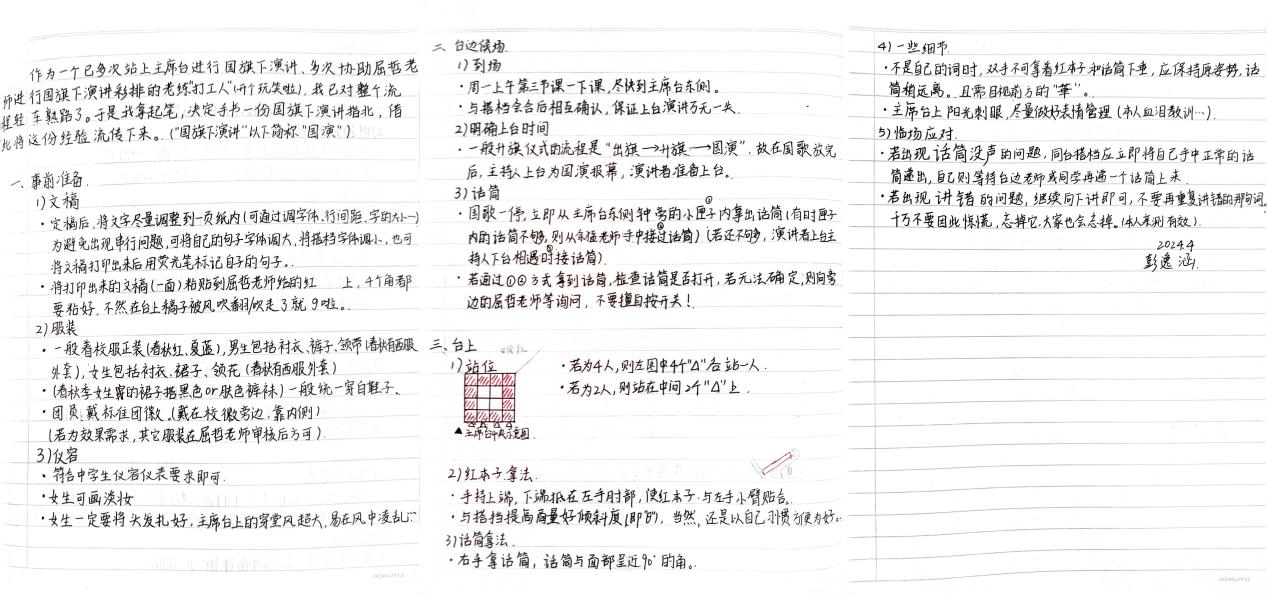 作为一个已多次站上主席台进行国旗下演讲、多次协助屈哲老
师进行国旗下演讲彩排的老练"打工人"(开个玩笑啦),我已对整个流
程轻车熟路了。于是我拿起笔,决定手书一份国旗下演讲指北,借
此将这份经验流传下来。("国旗下演讲"以下简称"国演")
一、事前准备.
1)文稿
·定稿后,将文字尽量调整到一页纸内(可通过调字体、行间距、字的大小…)
为避免出现串行问题,可将自己的句子字体调大,将搭档字体调小,也可
将文稿打印出来后用荧光笔标记自子的句子。
·将打印出来的文稿(一面)粘贴到屈哲老师给的红 上,4个角都
要粘好,不然在台上稿子被风吹翻/吹走了就9啦。
2)服装
·一般着校服正装(春秋红、夏蓝),男生包括衬衣、裤子、领带(春秋有西服
外套),女生包括衬衣、裙子、领花(春秋有西服外套)
·(春秋季女生穿的裙子搭黑色or肤色裤袜)一般统一穿白鞋子、
·团员:戴标准团徽.(戴在校徽旁边,靠内侧)
(若为效果需求,其它服装在屈哲老师审核后方可).
3)仪容
·符合中学生仪容仪表要求即可.
·女生可画淡妆
·女生一定要将头发扎好,主席台上的穿堂风超大,易在风中凌乱…
KOKUYO
二 台边候场.
1)到场
·周一上午第二节课一下课,尽快到主席台东侧。
·与搭档会合后相互确认,保证上台演讲万无一失.
2)明确上台时间
·一般升旗仪式的流程是"出旗→升旗→国演",故在国歌放完
后,主持人上台为国演报幕,演讲者准备上台。
3)话筒
·国歌一停,立即从主席台东侧钟旁的小匣子内拿出话筒(有时匣子
①
内的话筒不够,则从余猛老师手中接过话筒)(若还不够,演讲者上台主
②
持人下台相遇时接话筒).
③
·若通过①②③式拿到话筒,检查话筒是否打开,若无法确定,则向旁
边的屈哲老师等询问,不要擅自按开关!
三、台上
1)站位
·若为4人,则左图中4个"△"各站一人.
·若为2人,则站在中间2个"△"上.
▲主席台中央示意图.
2)红本子拿法.
·手持上端,下端抵在左手肘部,使红本子与左手小臂贴合.
·与搭档提前商量好倾斜度(即"θ"),当然,还是以自己习惯方便为好。
3)话筒拿法.
·右手拿话筒,话筒与面部呈近90°的角。
KOKUYO
4)一些细节.
·不是自己的词时,双手不可拿着红本子和话筒下垂,应保持原姿势,话
筒稍远离。且需目视前方的"華"。
·主席台上阳光刺眼,尽量做好表情管理(本人血泪教训…)
5)临场应对.
·若出现话筒没声的问题,同台搭档应立即将自己手中正常的话
筒递出,自己则等待台边老师或同学再递一个话筒上来.
·若出现讲错的问题,继续向下讲即可,不要再重复讲错的那句词,
千万不要因此惊慌,忘掉它,大家也会忘掉。(本人亲测有效).
2024.4
彭逸涵.